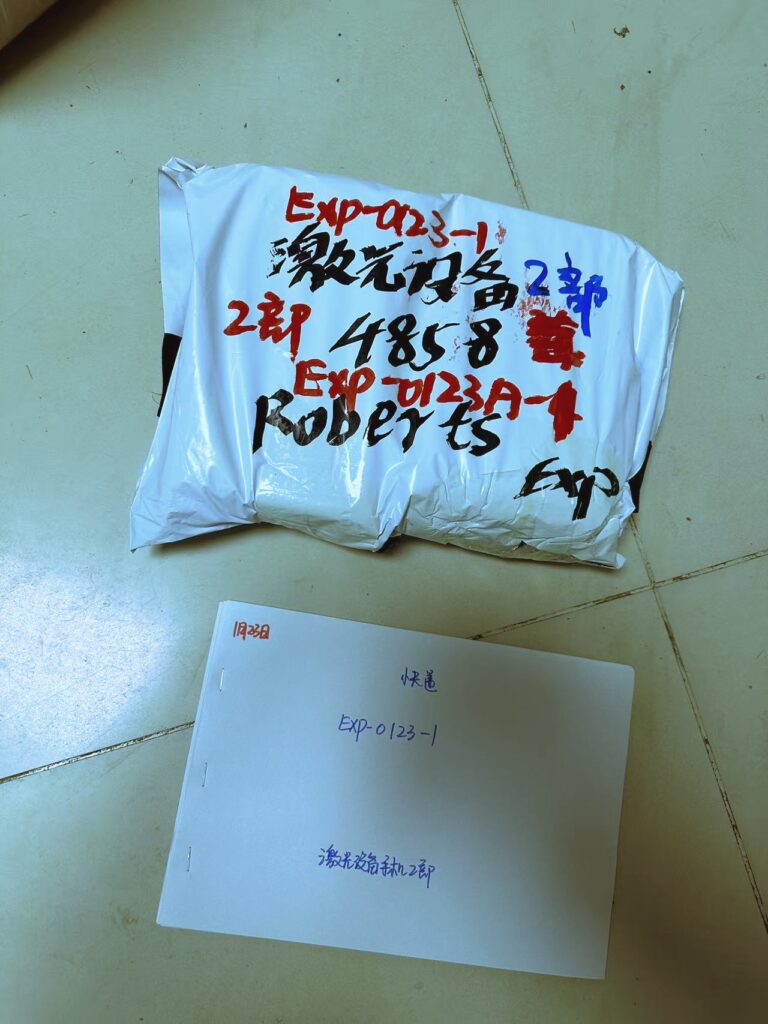 Exp-0123-1
激光设备 2部
2部 4858
Exp-0123A-1
Roberts
Exp
1月23日
快递
Exp-0123-1
激光设备手机2部